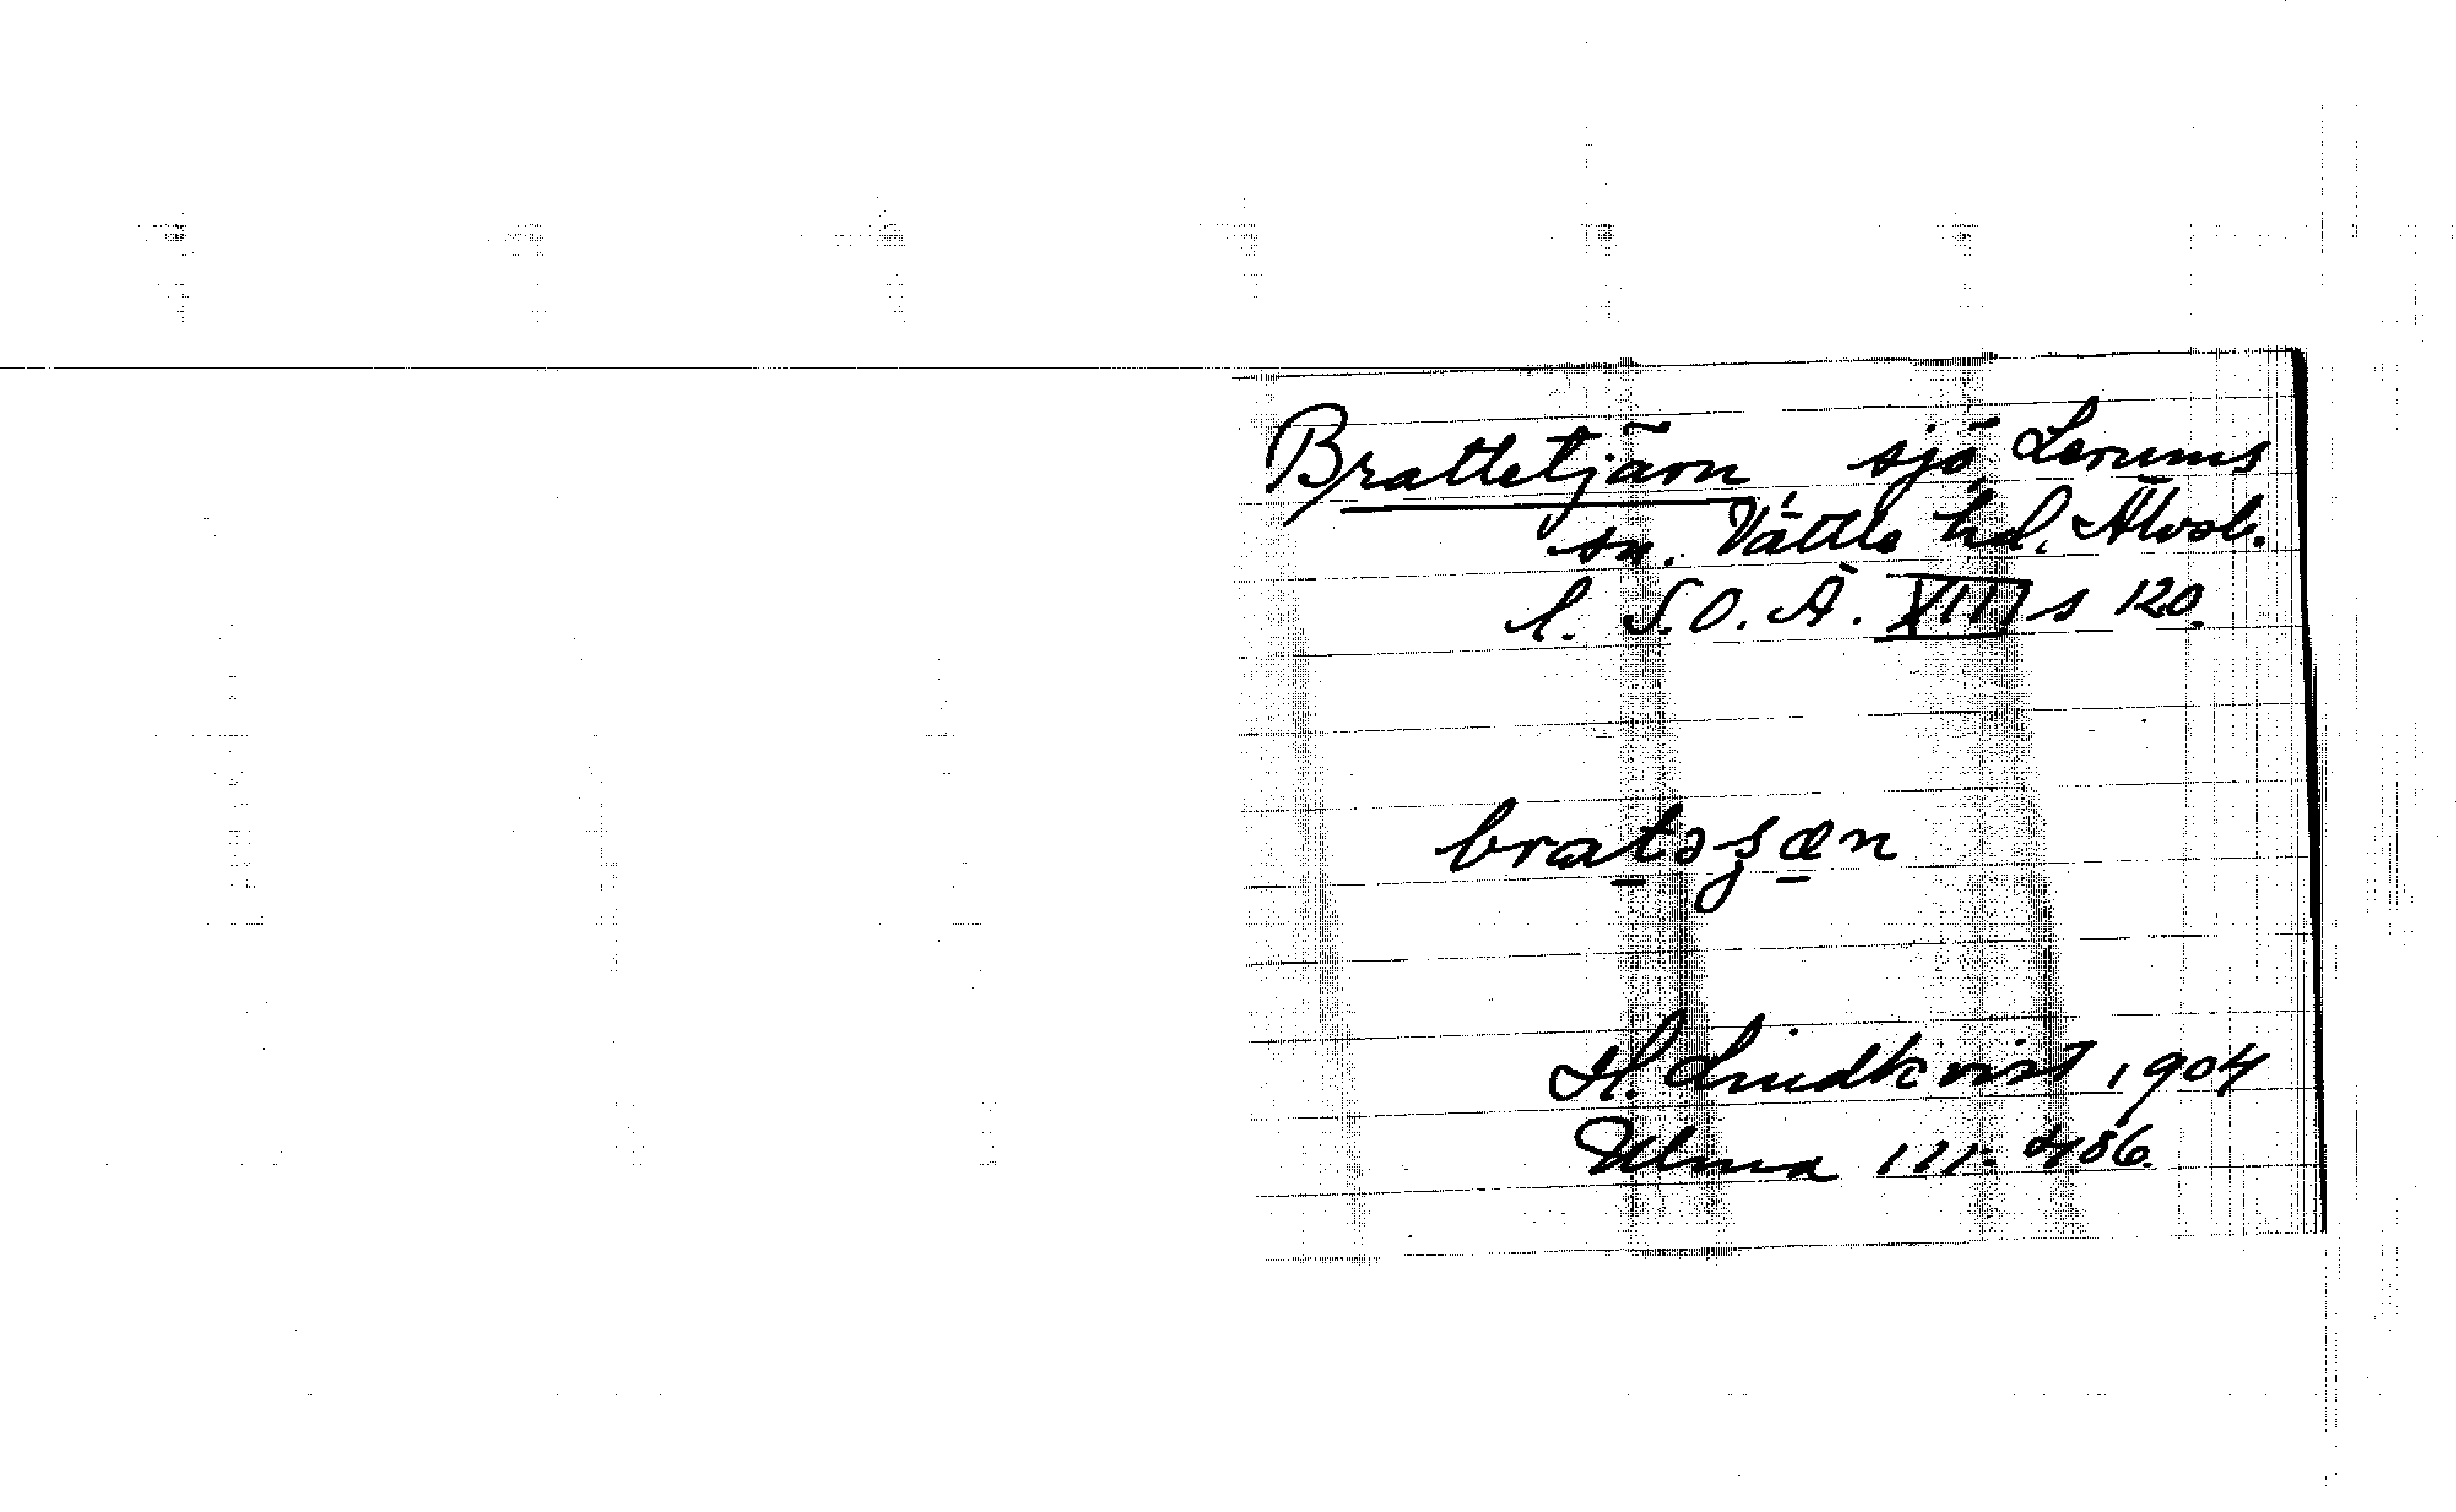 Brattetjärn sjö, Lerums
sn. Vättle hd. Älvsb.
l. S.O.Ä. XIII s 120.
brat̠əʂæ̠n
H. Lindkvist 1904
Ulma 111:486.